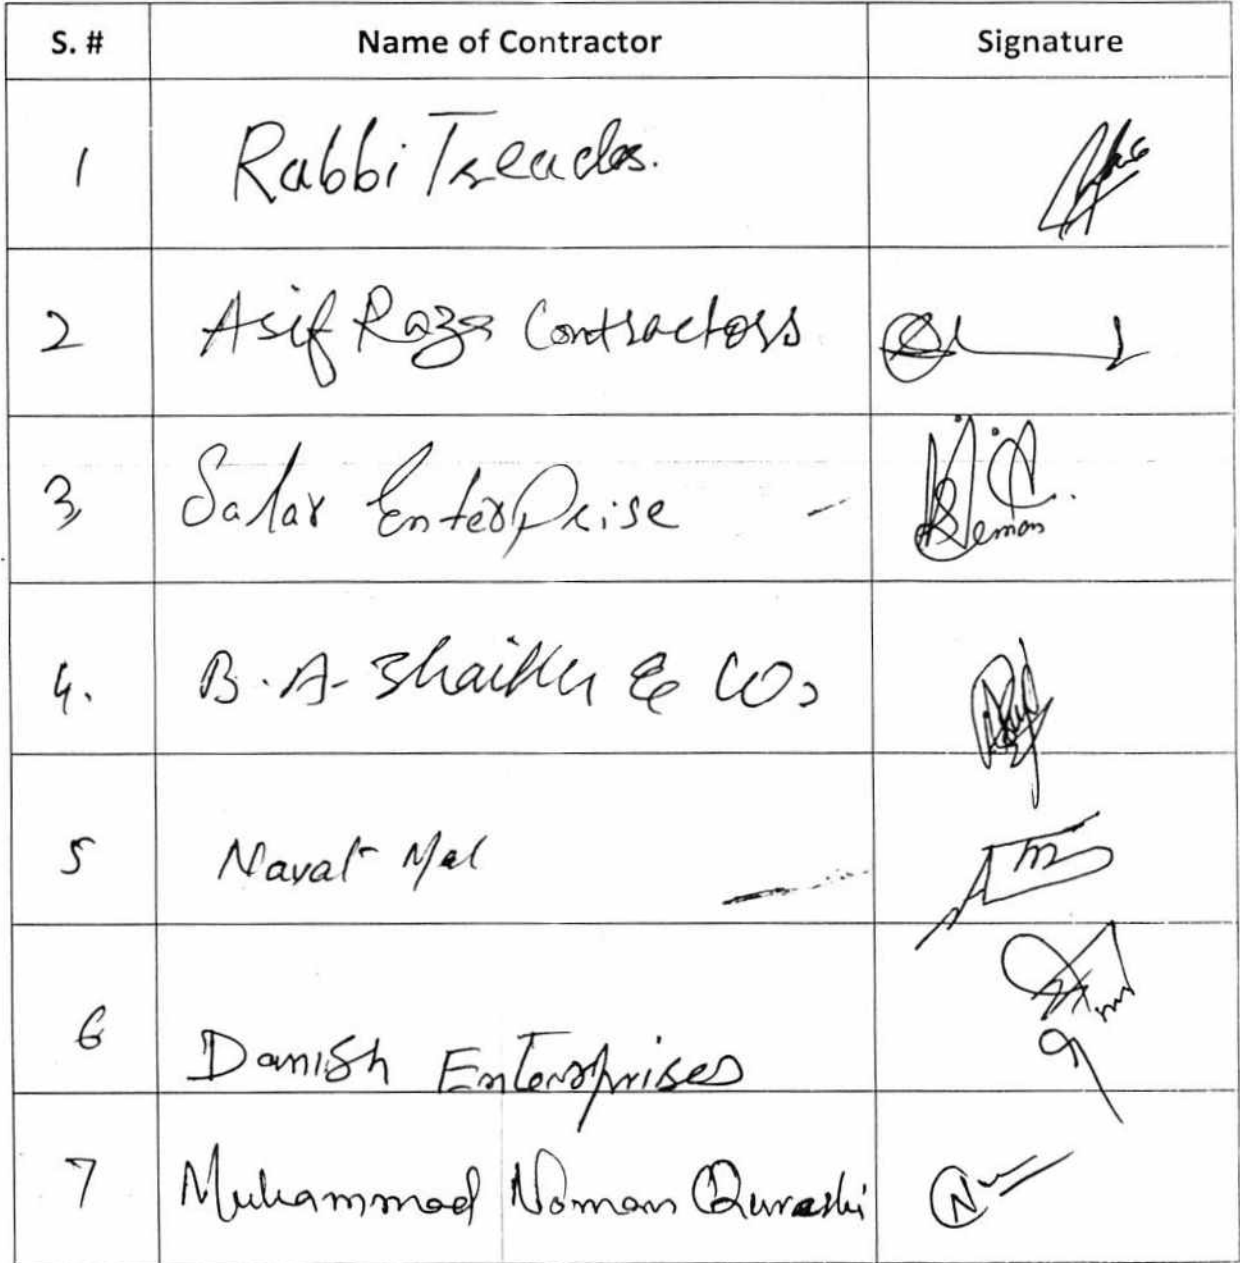 S. # Name of Contractor Signature
1 Rabbi Treades.
2 Asif Raza Contractors
3, Salar Enterprise
4. B.A- Shaikh & Co,
5 Naval Mal
6 Danish Enterprises
7 Muhammad Noman Qurashi